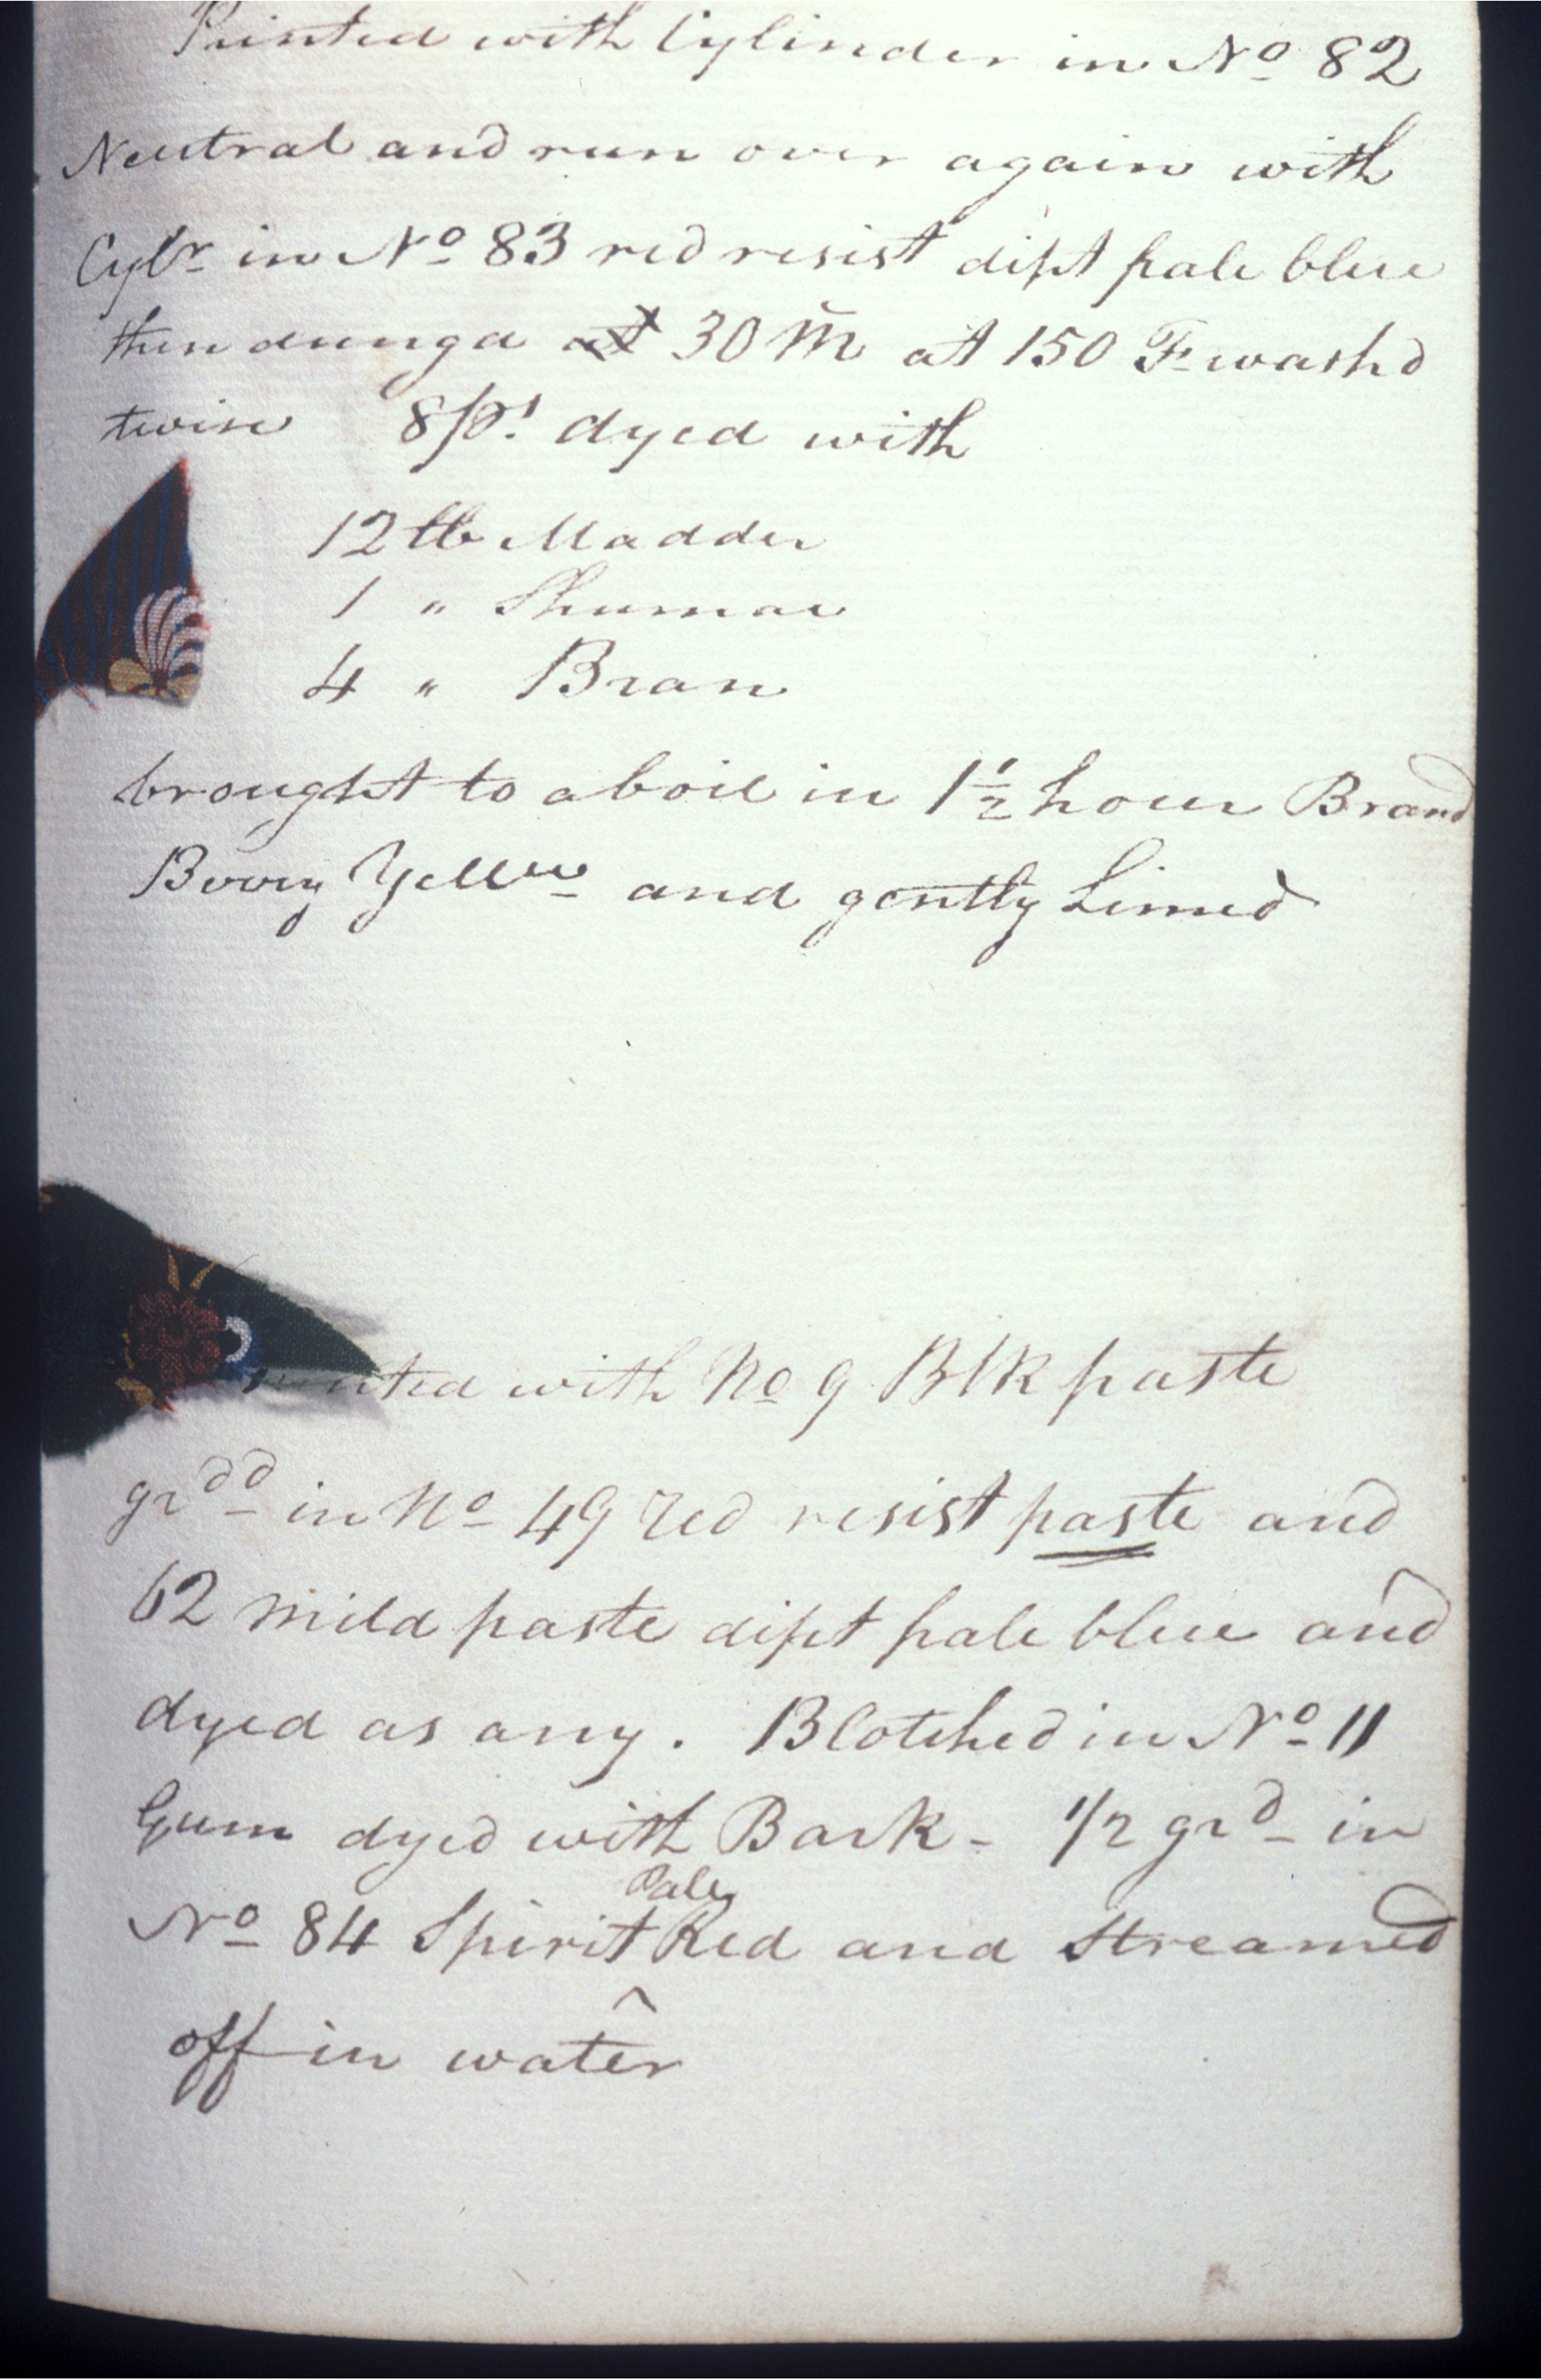 Printed with Cylinder in No 82
Neutral and run over again with
Cylr in No 83 red resist dipt pale blue
then dunga at 30 M at 150 F wash'd
twise 8 ps! dyed with
12 lb Madder
1 " Shumac
4 " Bran
brought to a boil in 1 1/2 hour Brand
Berry Yellw and gently Limed
nted with No 9 Blk paste
grdd in No 49 red resist paste and
62 mild paste dipt pale blue and
dyed as any. Blotched in No 11
Gum dyed with Bark - 1/2 grd in
No 84 Spirit Pale Red and Streamed
off in water